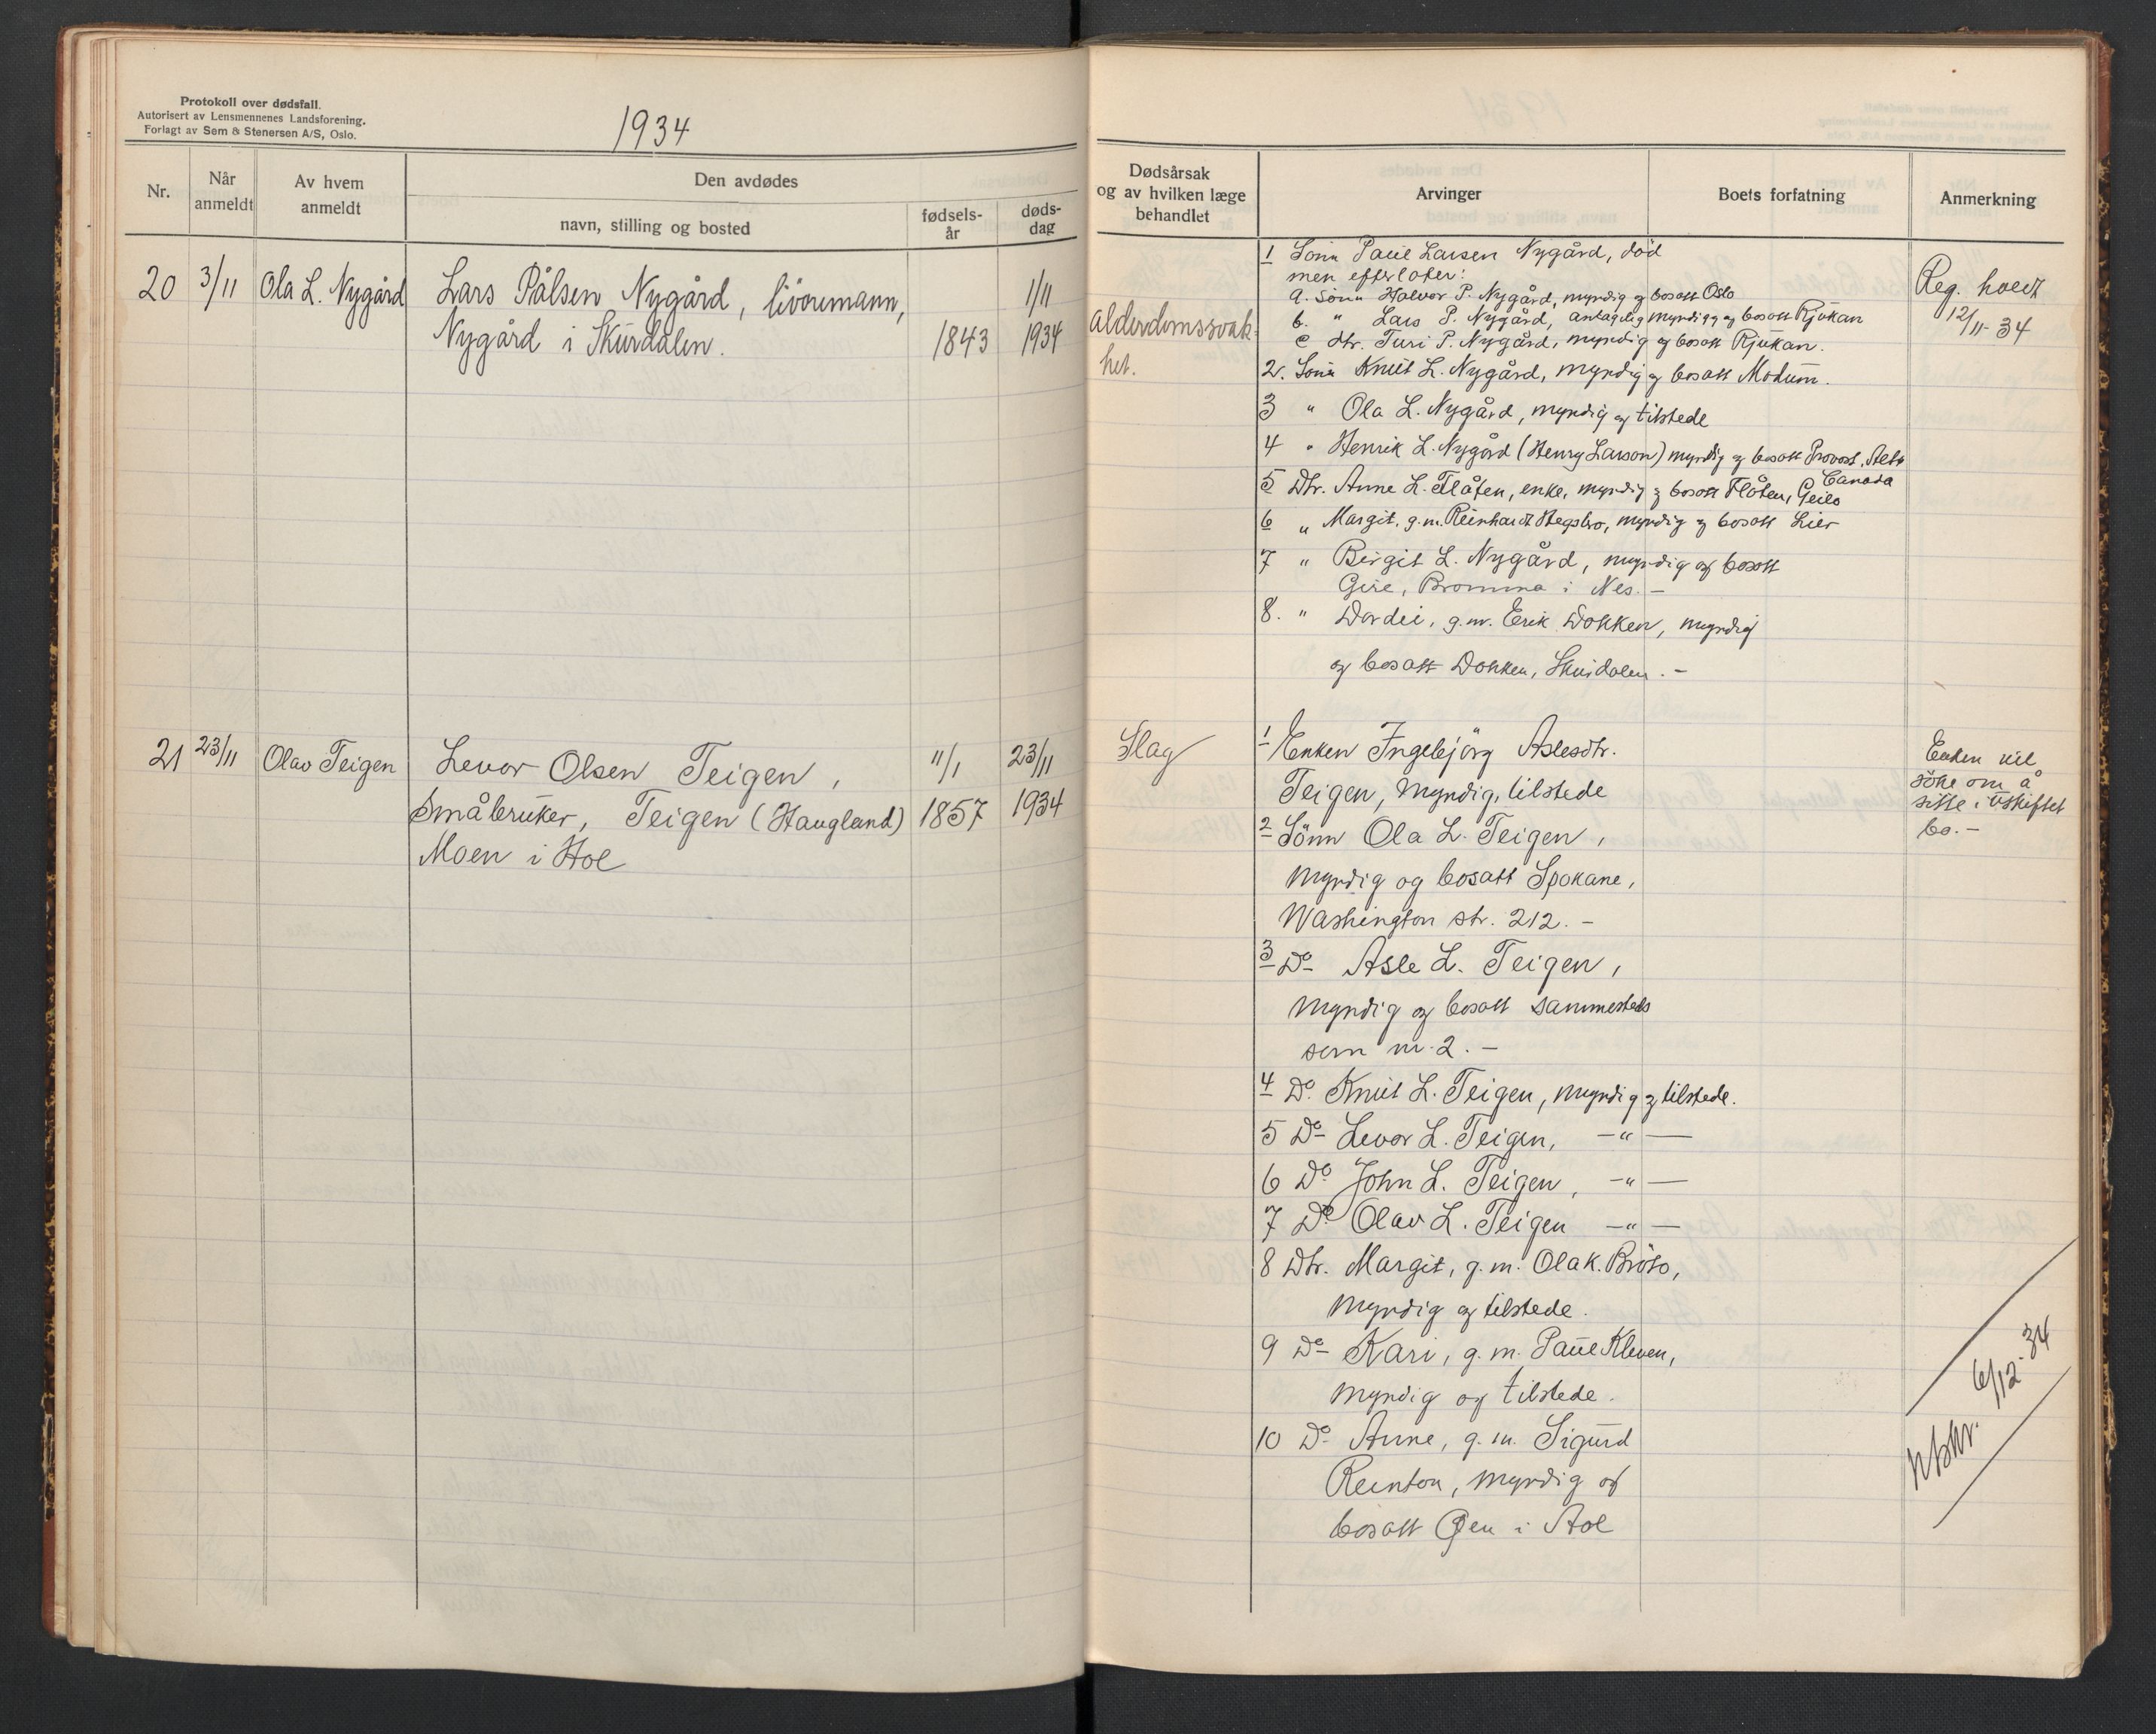 Protokoll over dødsfall.
Autorisert av Lensmennenes Landsforening.
Forlagt av Sem & Stenersen A/S, Oslo.
1934
Nr.
Når anmeldt
Av hvem anmeldt
Den avdødes
navn, stilling og bosted
fødselsår
dødsdag
20 3/11 Ola L. Nygård Lars Pålsen Nygård, livøremann, 1/11
Nygård i Skurdalen. 1843 1934
21 23/11 Olav Teigen Levor Olsen Teigen, 11/1 23/11
Småbruker, Teigen (Haugland) 1857 1934
Moen i Hol
Dødsårsak
og av hvilken læge
behandlet
Arvinger
Boets forfatning
Anmerkning
alderdomssvak-
het.
1 Sönn Paul Larsen Nygård, död
men efterlater:
a. Sönn Halvor P. Nygård, myndig og bosatt Oslo
b. " Lars P. Nygård, antagelig myndig og bosatt Rjukan
c dtr. Turi P. Nygård, myndig og bosatt Rjukan.
2. Sönn Knut L. Nygård, myndig og bosatt Modum.
3 " Ola L. Nygård, myndig og tilstede
4 " Henrik L. Nygård (Henry Larson) myndig og bosatt Provost, Alta
Canada
5 Dtr. Anne L. Flåten, enke, myndig og bosatt Flåten, Geilo
6 " Margit, g.m. Reinhardt Hegsbro, myndig og bosatt Lier
7 " Birgit L. Nygård, myndig og bosatt
Gire, Bromma i Nes. -
8. " Dordei, g.m. Erik Dokken, myndig
og bosatt Dokken, Skurdalen. -
Reg. holdt
12/11-34
Slag
1 Enken Ingebjörg Aslesdtr.
Teigen, Myndig, tilstede
2 Sönn Ola L. Teigen,
Myndig og bosatt Spokane,
Washington str. 212. -
3 Do Asle L. Teigen,
Myndig og bosatt sammesteds
som nr. 2. -
4 Do. Knut L. Teigen, Myndig og tilstede.
5 Do Levor L. Teigen, -"-
6 Do John L. Teigen, -"-
7 Do Olav L. Teigen -"-
8 Dtr. Margit, g.m. Ola K. Bröto,
Myndig og tilstede.
9 Do Kari, g.m. Paul Kleven,
Myndig og tilstede.
10 Do Anne, g.m. Sigurd
Reinton, Myndig og
bosatt Øen i Hol
Enken vil
söke om å
sitte i uskiftet
bo. -
Utskr. 6/12-34